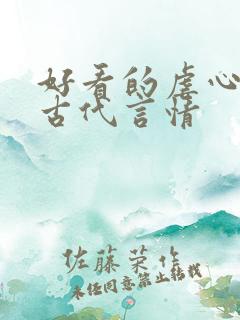 好看的虐心
古代言情
佐藤荣作
未经同意禁止转载